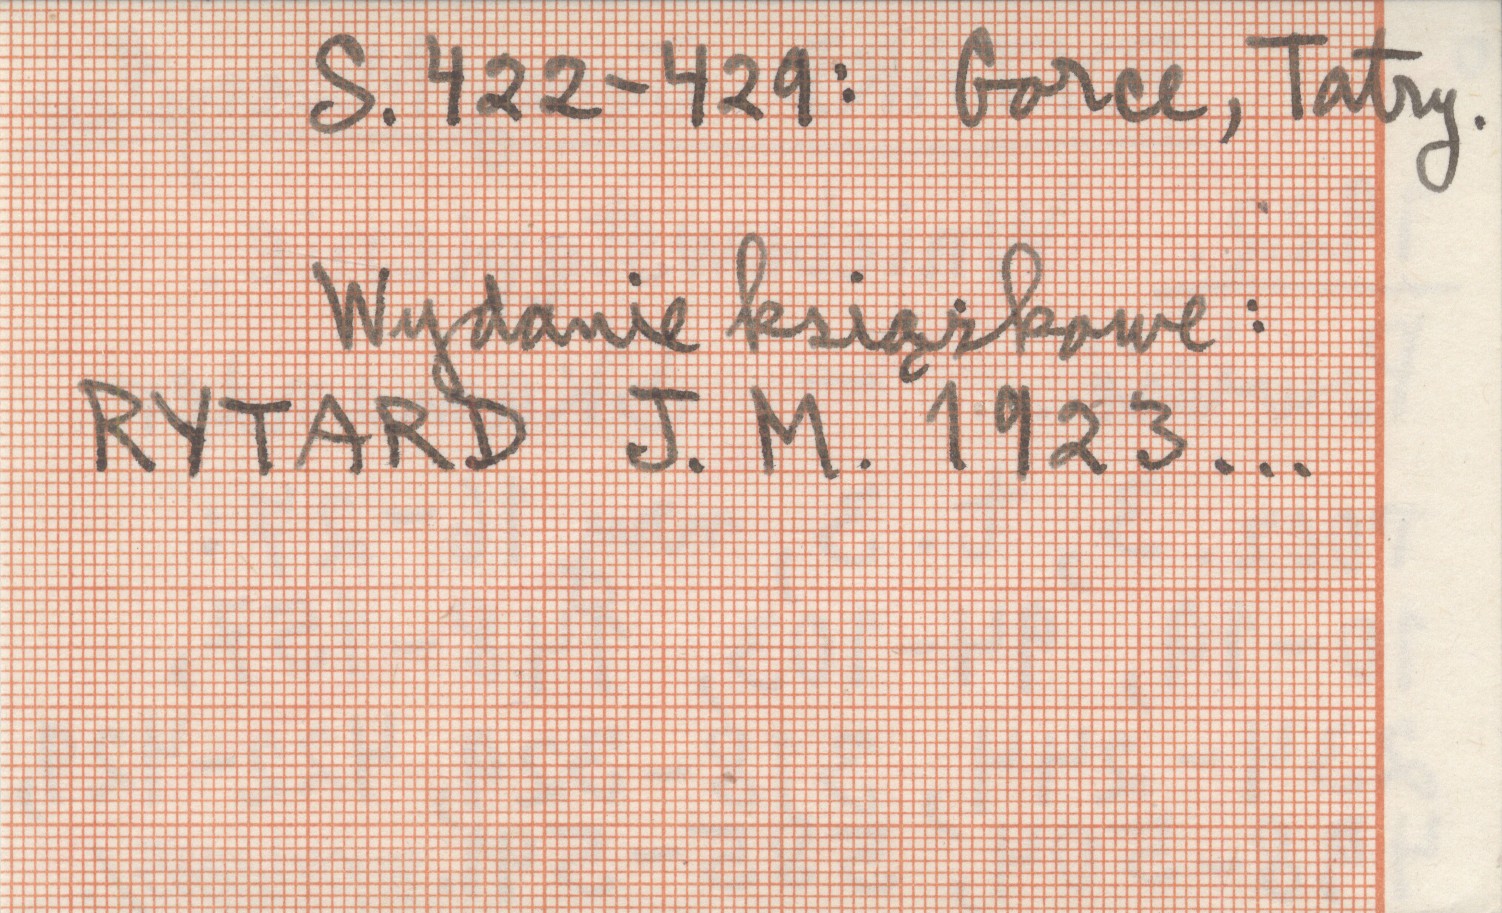 S. 422-429: Gorce, Tatry.
Wydanie książkowe:
RYTARD J. M. 1923...